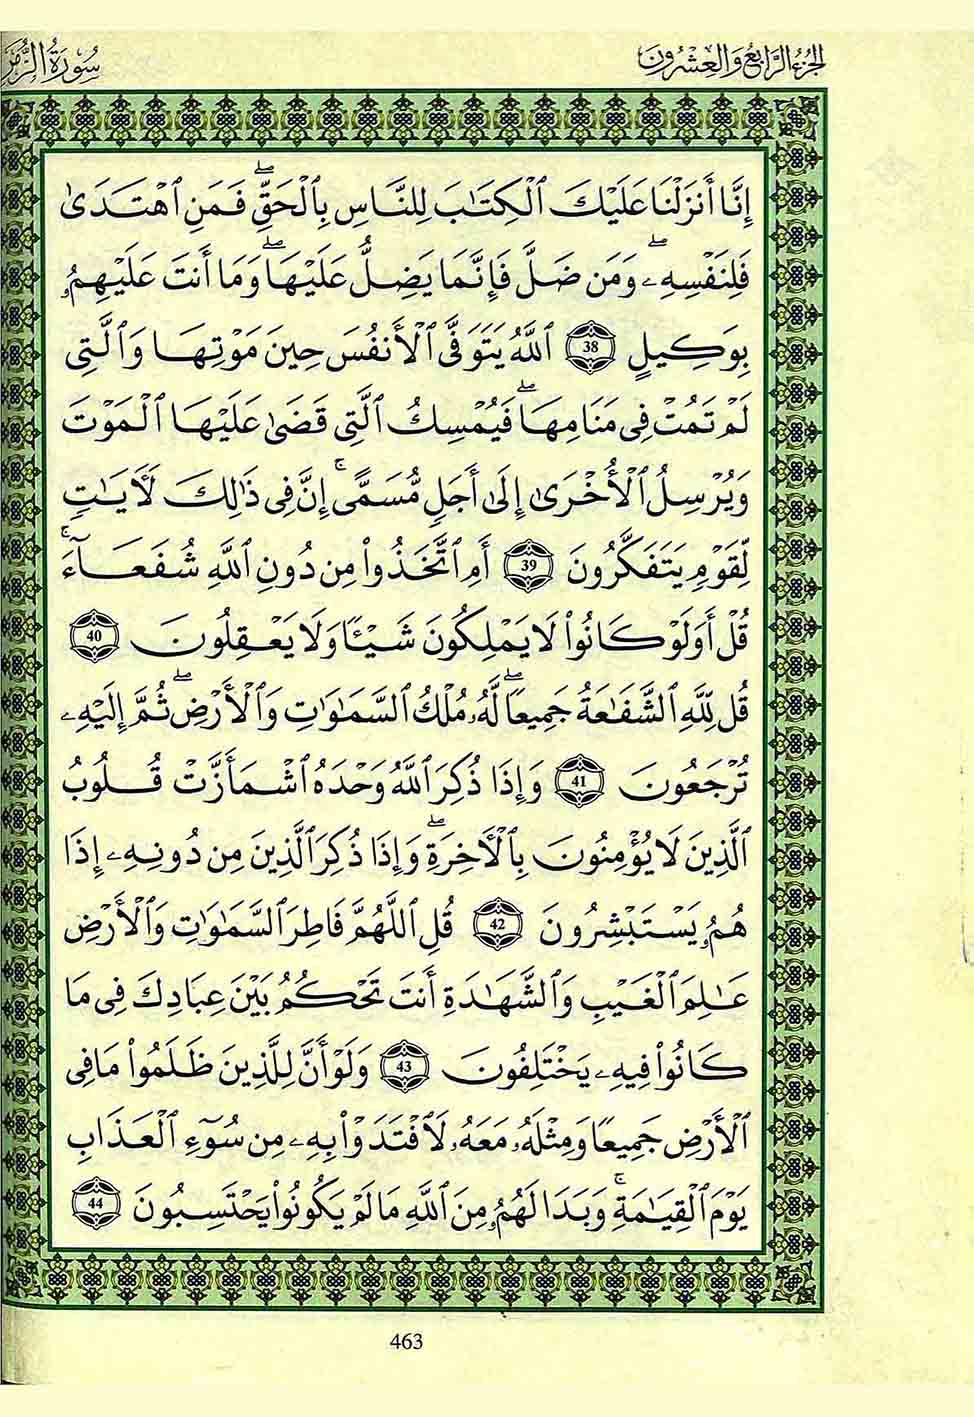 الجزء الرابع والعشرون
سورة الزمر
إِنَّا أَنزَلْنَا عَلَيْكَ ٱلْكِتَٰبَ لِلنَّاسِ بِٱلْحَقِّۖ فَمَنِ ٱهْتَدَىٰ
فَلِنَفْسِهِۦۖ وَمَن ضَلَّ فَإِنَّمَا يَضِلُّ عَلَيْهَاۖ وَمَا أَنتَ عَلَيْهِمُۥ
بِوَكِيلٍ 38 ٱللَّهُ يَتَوَفَّى ٱلْأَنفُسَ حِينَ مَوْتِهَا وَٱلَّتِي
لَمْ تَمُتْ فِي مَنَامِهَاۖ فَيُمْسِكُ ٱلَّتِي قَضَىٰ عَلَيْهَا ٱلْمَوْتَ
وَيُرْسِلُ ٱلْأُخْرَىٰ إِلَىٰ أَجَلٍ مُّسَمًّىۚ إِنَّ فِي ذَٰلِكَ لَأَيَٰتٍ
لِّقَوْمٍ يَتَفَكَّرُونَ 39 أَمِ ٱتَّخَذُواْ مِن دُونِ ٱللَّهِ شُفَعَآءَۚ
قُلْ أَوَلَوْ كَانُواْ لَا يَمْلِكُونَ شَيْـًٔا وَلَا يَعْقِلُونَ 40
قُل لِّلَّهِ ٱلشَّفَٰعَةُ جَمِيعًاۖ لَّهُۥ مُلْكُ ٱلسَّمَٰوَٰتِ وَٱلْأَرْضِۖ ثُمَّ إِلَيْهِۦ
تُرْجَعُونَ 41 وَإِذَا ذُكِرَ ٱللَّهُ وَحْدَهُ ٱشْمَأَزَّتْ قُلُوبُ
ٱلَّذِينَ لَا يُؤْمِنُونَ بِٱلْأَخِرَةِۖ وَإِذَا ذُكِرَ ٱلَّذِينَ مِن دُونِهِۦ إِذَا
هُمُۥ يَسْتَبْشِرُونَ 42 قُلِ ٱللَّهُمَّ فَاطِرَ ٱلسَّمَٰوَٰتِ وَٱلْأَرْضِ
عَٰلِمَ ٱلْغَيْبِ وَٱلشَّهَٰدَةِ أَنتَ تَحْكُمُ بَيْنَ عِبَادِكَ فِي مَا
كَانُواْ فِيهِۦ يَخْتَلِفُونَ 43 وَلَوْ أَنَّ لِلَّذِينَ ظَلَمُواْ مَا فِي
ٱلْأَرْضِ جَمِيعًا وَمِثْلَهُۥ مَعَهُۥ لَٱفْتَدَوْاْ بِهِۦ مِن سُوٓءِ ٱلْعَذَابِ
يَوْمَ ٱلْقِيَٰمَةِۚ وَبَدَا لَهُمُۥ مِنَ ٱللَّهِ مَا لَمْ يَكُونُواْ يَحْتَسِبُونَ 44
463